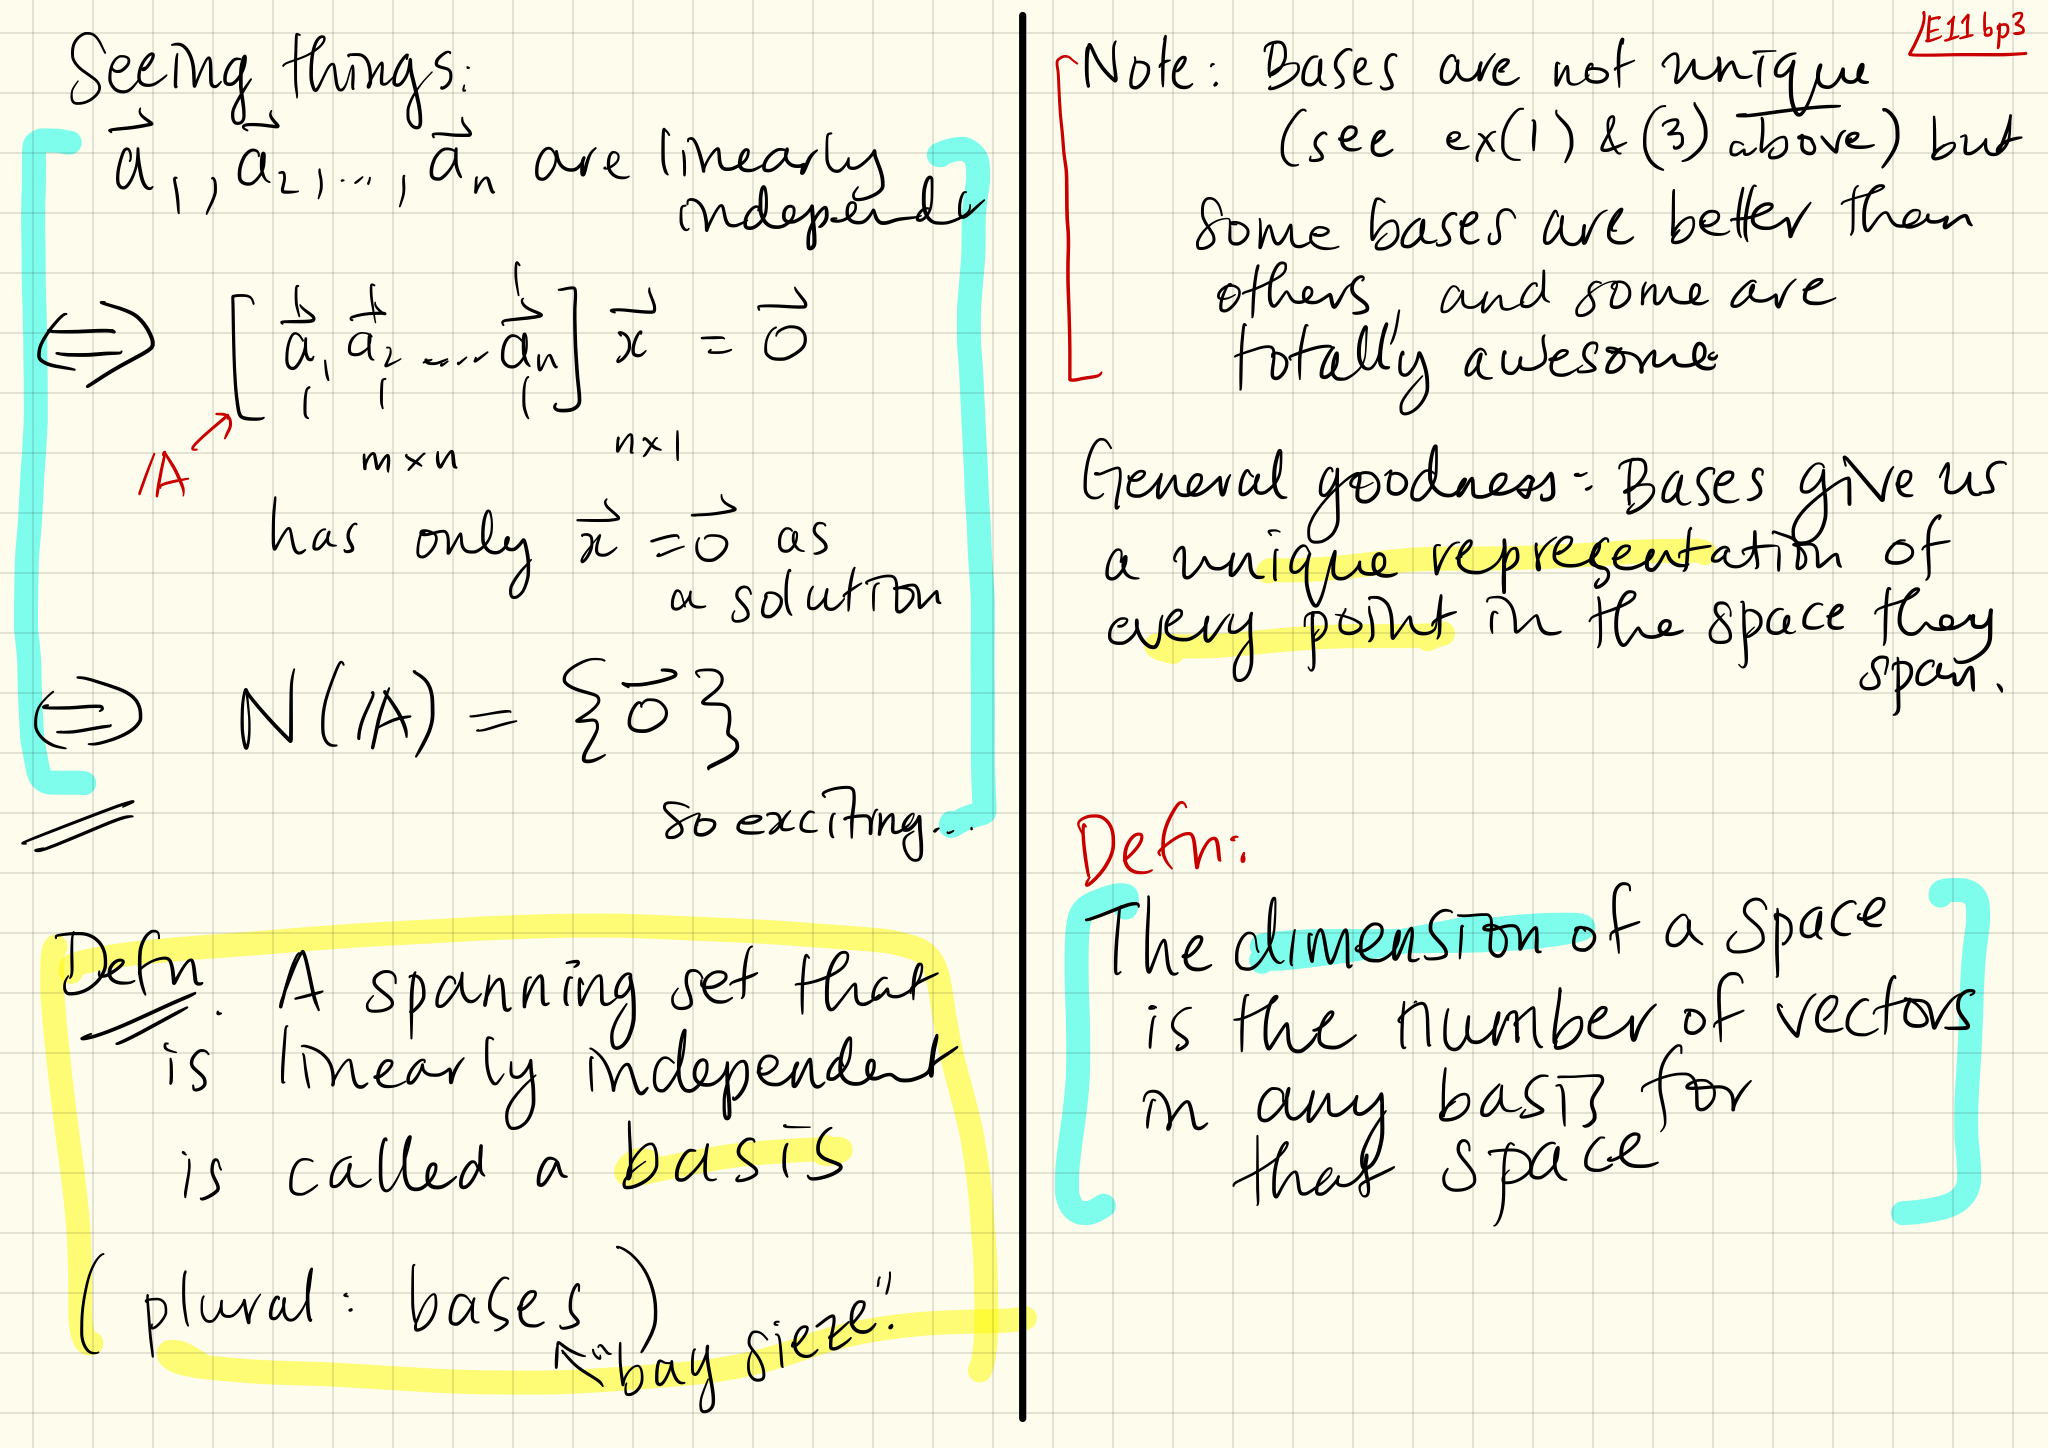 Seeing things:
a⃗₁, a⃗₂, ..., a⃗ₙ are linearly
independ
⇔ [ a⃗₁ a⃗₂ .... a⃗ₙ ] x⃗ = 0⃗
A m×n n×1
has only x⃗ = 0⃗ as
a solution
⇔ N(A) = { 0⃗ }
so exciting...
Defn. A spanning set that
is linearly independent
is called a basis
(plural: bases)
"bay sieze".
E11bp3
Note: Bases are not unique
(see ex(1) & (3) above) but
some bases are better than
others, and some are
totally awesome.
General goodness: Bases give us
a unique representation of
every point in the space they
span.
Defn:
The dimension of a space
is the number of vectors
in any basis for
that space